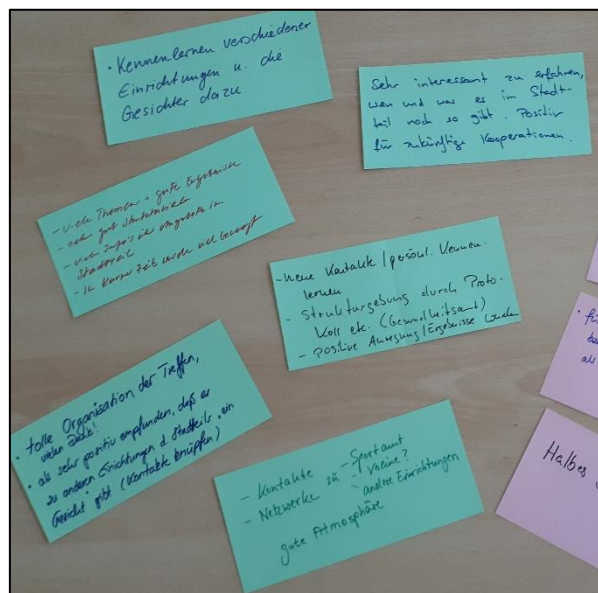 • Kennenlernen verschiedener
Einrichtungen u. die
Gesichter dazu
Sehr interessant zu erfahren,
wen und was es im Stadt-
teil noch so gibt. Positiv
für zukünftige Kooperationen.
- viele Themen + gute Ergebnisse
- sehr gut strukturiert
- viele Info's über Angebote im
Stadtteil
- In kurzer Zeit wurde viel geschafft
- neue Kontakte / persönl. Kennen.
lernen
- Strukturgebung durch Proto.
koll etc. (Gesundheitsamt)
- positive Anregung / Ergebnisse
• tolle Organisation der Treffen,
vielen Dank!
• als sehr positiv empfunden, daß es
zu anderen Einrichtungen d. Stadtteils „ein
Gesicht" gibt (Kontakte knüpfen)
- Kontakte
- Netzwerke zu - Sportamt
- Vereine?
andere Einrichtungen
gute Atmosphäre
als
Halbes